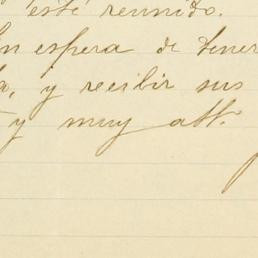 esté reunido.
En espera de tener
y recibir sus
y muy att.